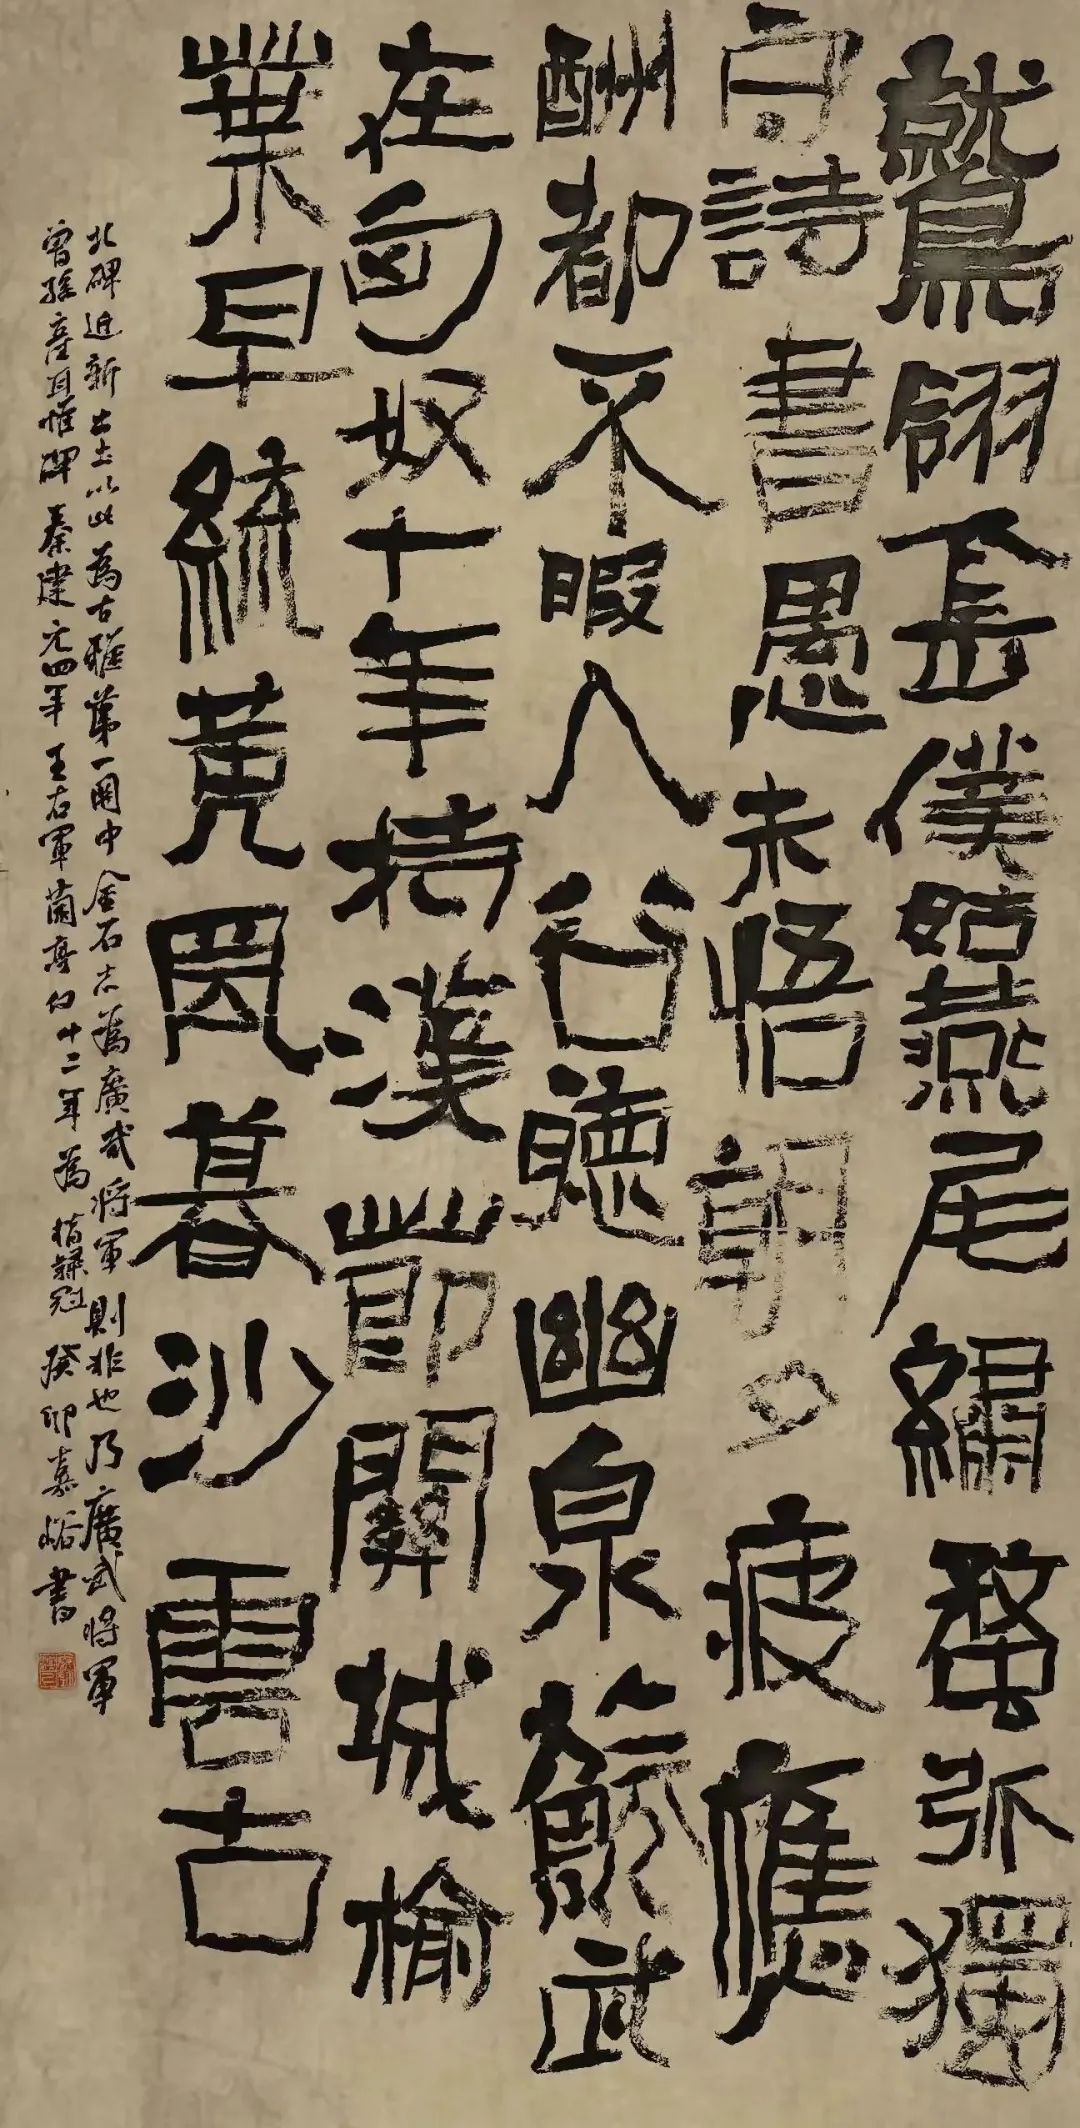 鷲翎金僕姑燕尾繡蝥弧獨
守詩書愚未悟朝夕疲應
酬都不暇人谷聽幽泉蘇武
在匈奴十年持漢節關城榆
葉早疏黃日暮沙雲古
北碑近新出土以此為古雅第一關中金石志為廣武將軍則非也乃廣武將軍
曾孫產耳惟碑秦建元四年王右軍蘭亭後十二年為楷隸冠癸卯嘉峪書